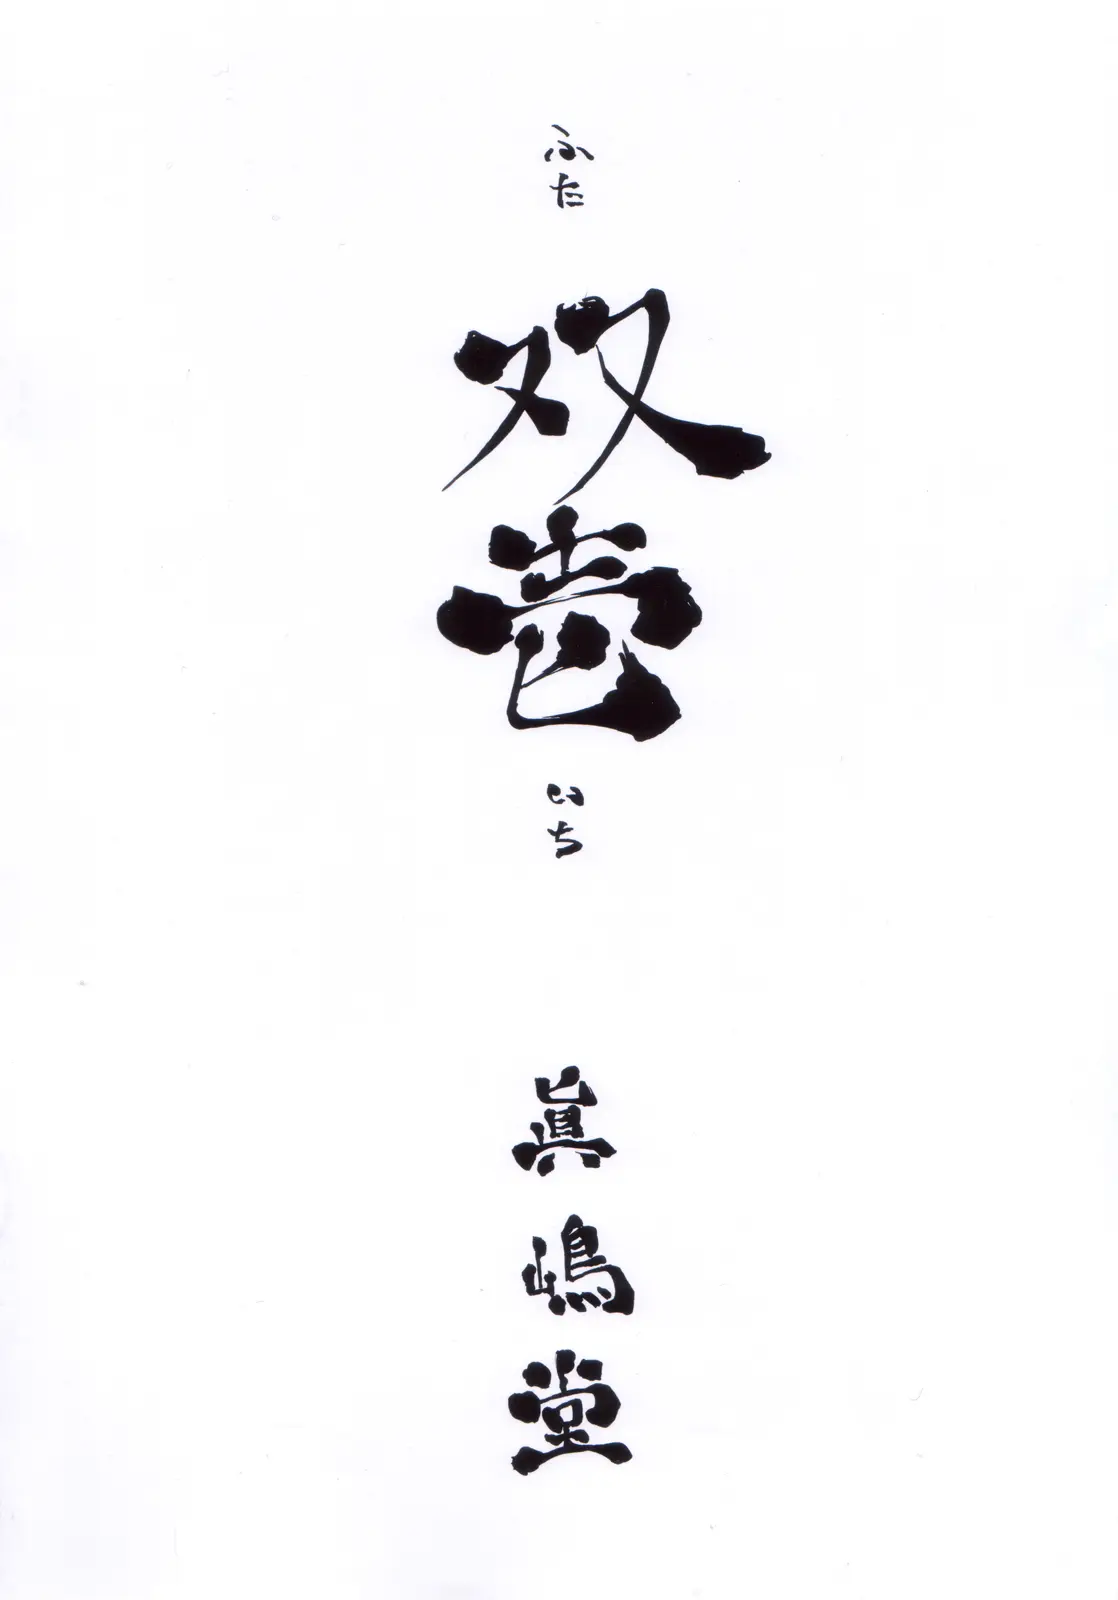 ふた
双壱
いち
眞嶋堂